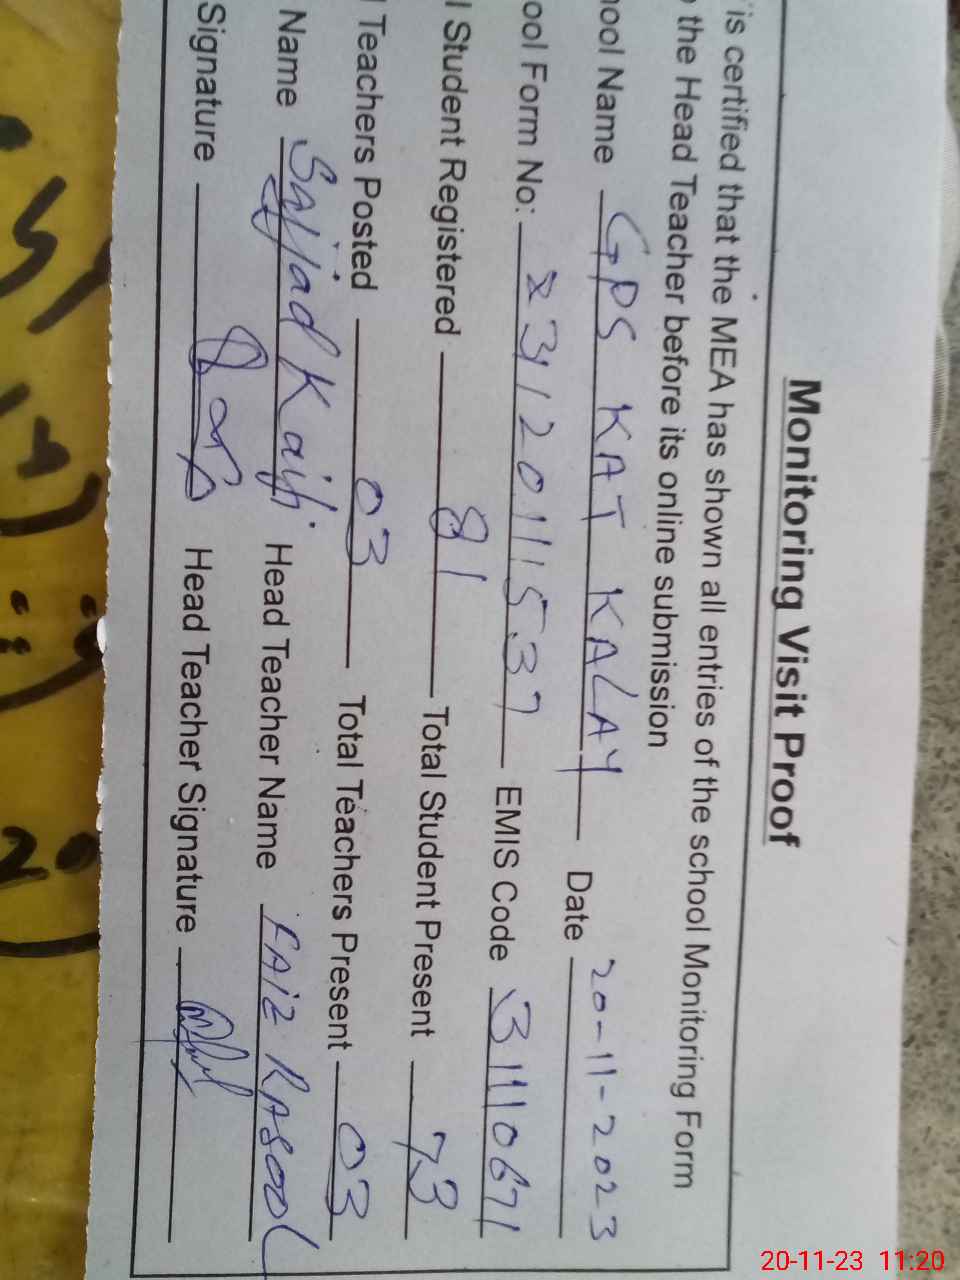 Monitoring Visit Proof
is certified that the MEA has shown all entries of the school Monitoring Form
the Head Teacher before its online submission
hool Name GPS KAT KALAY Date 20-11-2023
ool Form No: 23120111537 EMIS Code 31110671
l Student Registered 81 Total Student Present 73
l Teachers Posted 03 Total Teachers Present 03
Name Sajjad Head Teacher Name FAIZ RASOOL
Signature Head Teacher Signature
20-11-23 11:20